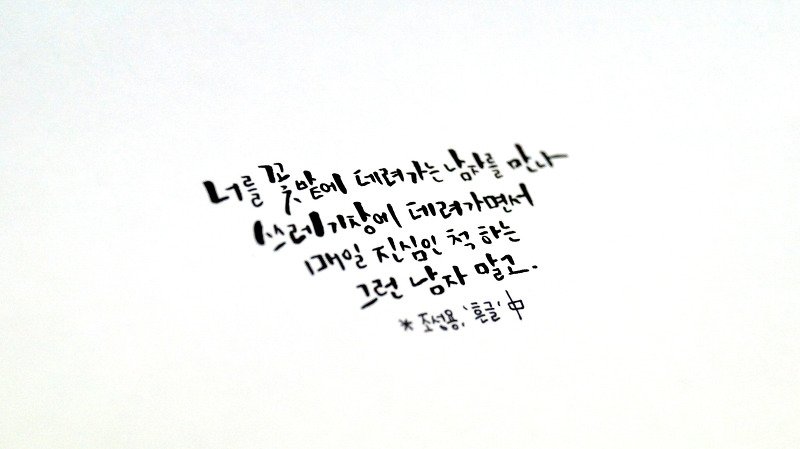 너를 꽃밭에 데려가는 남자를 만나
쓰레기장에 데려가면서
매일 진심인 척 하는
그런 남자 말고.
* 조섭용, '혼글' 中